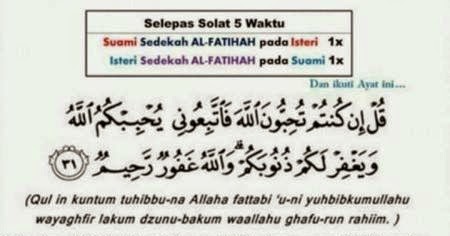 Selepas Solat 5 Waktu
Suami Sedekah AL-FATIHAH pada Isteri 1x
Isteri Sedekah AL-FATIHAH pada Suami 1x
Dan ikuti Ayat ini...
قُلْ إِن كُنتُمْ تُحِبُّونَ ٱللَّهَ فَٱتَّبِعُونِي يُحْبِبْكُمُ ٱللَّهُ
وَيَغْفِرْ لَكُمْ ذُنُوبَكُمْ ۗ وَٱللَّهُ غَفُورٌ رَّحِيمٌ ٣١
(Qul in kuntum tuhibbu-na Allaha fattabi 'u-ni yuhbibkumullahu
wayaghfir lakum dzunu-bakum waallahu ghafu-run rahiim. )